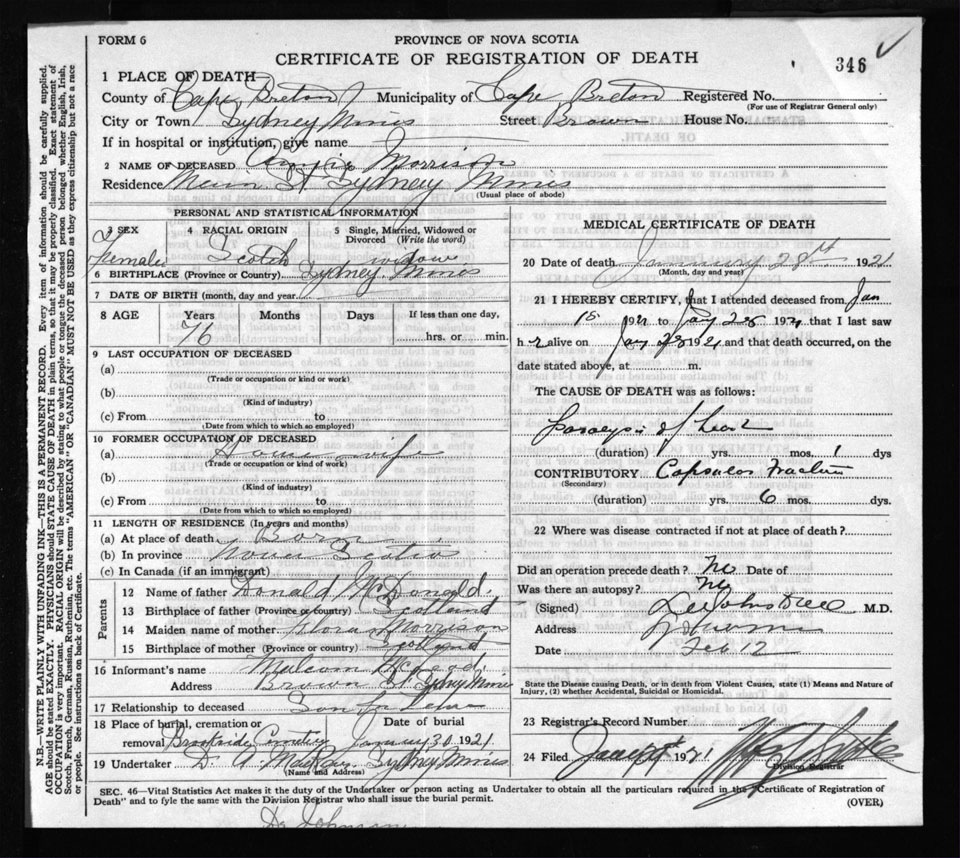 FORM 6
PROVINCE OF NOVA SCOTIA
CERTIFICATE OF REGISTRATION OF DEATH
346
1 PLACE OF DEATH
County of Cape Breton Municipality of Cape Breton Registered No.
(For use of Registrar General only)
City or Town Sydney Mines Street Brown House No.
If in hospital or institution, give name
2 NAME OF DECEASED Morrison
Residence Main St Sydney Mines
(Usual place of abode)
PERSONAL AND STATISTICAL INFORMATION
3 SEX 4 RACIAL ORIGIN 5 Single, Married, Widowed or Divorced (Write the word)
Female Scotch widow
6 BIRTHPLACE (Province or Country) Sydney Mines
7 DATE OF BIRTH (month, day and year)
8 AGE Years Months Days If less than one day,
76 hrs. or min.
9 LAST OCCUPATION OF DECEASED
(a)
(Trade or occupation or kind or work)
(b)
(Kind of industry)
(c) From to
(Date from which to which so employed)
10 FORMER OCCUPATION OF DECEASED
(a) House wife
(Trade or occupation or kind or work)
(b)
(Kind of industry)
(c) From to
(Date from which to which so employed)
11 LENGTH OF RESIDENCE (In years and months)
(a) At place of death Born
(b) In province Nova Scotia
(c) In Canada (if an immigrant)
Parents
12 Name of father Donald McDonald.
13 Birthplace of father (Province or country) Scotland
14 Maiden name of mother Flora Morrison
15 Birthplace of mother (Province or country) Scotland
16 Informant's name Malcom
Address Brown St. Sydney Mines
17 Relationship to deceased Son in Law
18 Place of burial, cremation or removal Date of burial
Brookside Cemetery January 30 1921.
19 Undertaker D. A. MacKay. Sydney Mines
(Name and Address)
MEDICAL CERTIFICATE OF DEATH
20 Date of death January 28th 1921
(Month, day and year)
21 I HEREBY CERTIFY, that I attended deceased from Jan
1921 to Jay 28 1921 that I last saw
her alive on Jay 28 1921 and that death occurred, on the
date stated above, at m.
The CAUSE OF DEATH was as follows:
Paralysis of heart
(duration) yrs. mos. 1 dys
CONTRIBUTORY
(Secondary)
(duration) yrs. 6 mos. dys.
22 Where was disease contracted if not at place of death?
Did an operation precede death? No Date of
Was there an autopsy? No
(Signed) M.D.
Address
Date Feb 12
State the Disease causing Death, or in death from Violent Causes, state (1) Means and Nature of Injury, (2) whether Accidental, Suicidal or Homicidal.
23 Registrar's Record Number
24 Filed
Division Registrar
SEC. 46—Vital Statistics Act makes it the duty of the Undertaker or person acting as Undertaker to obtain all the particulars required in the "Certificate of Registration of
Death" and to fyle the same with the Division Registrar who shall issue the burial permit.
(OVER)
N.B.—WRITE PLAINLY WITH UNFADING INK—THIS IS A PERMANENT RECORD. Every item of information should be carefully supplied.
AGE should be stated EXACTLY. PHYSICIANS should STATE CAUSE OF DEATH in plain terms, so that it may be properly classified. Exact statement of
OCCUPATION is very important. RACIAL ORIGIN will be described by stating to what people or tongue the deceased person belonged, whether English, Irish,
Scotch, French, German, Russian, Ruthenian, etc. The terms "AMERICAN" OR "CANADIAN" MUST NOT BE USED as they express citizenship but not a race
or people. See instructions on back of Certificate.